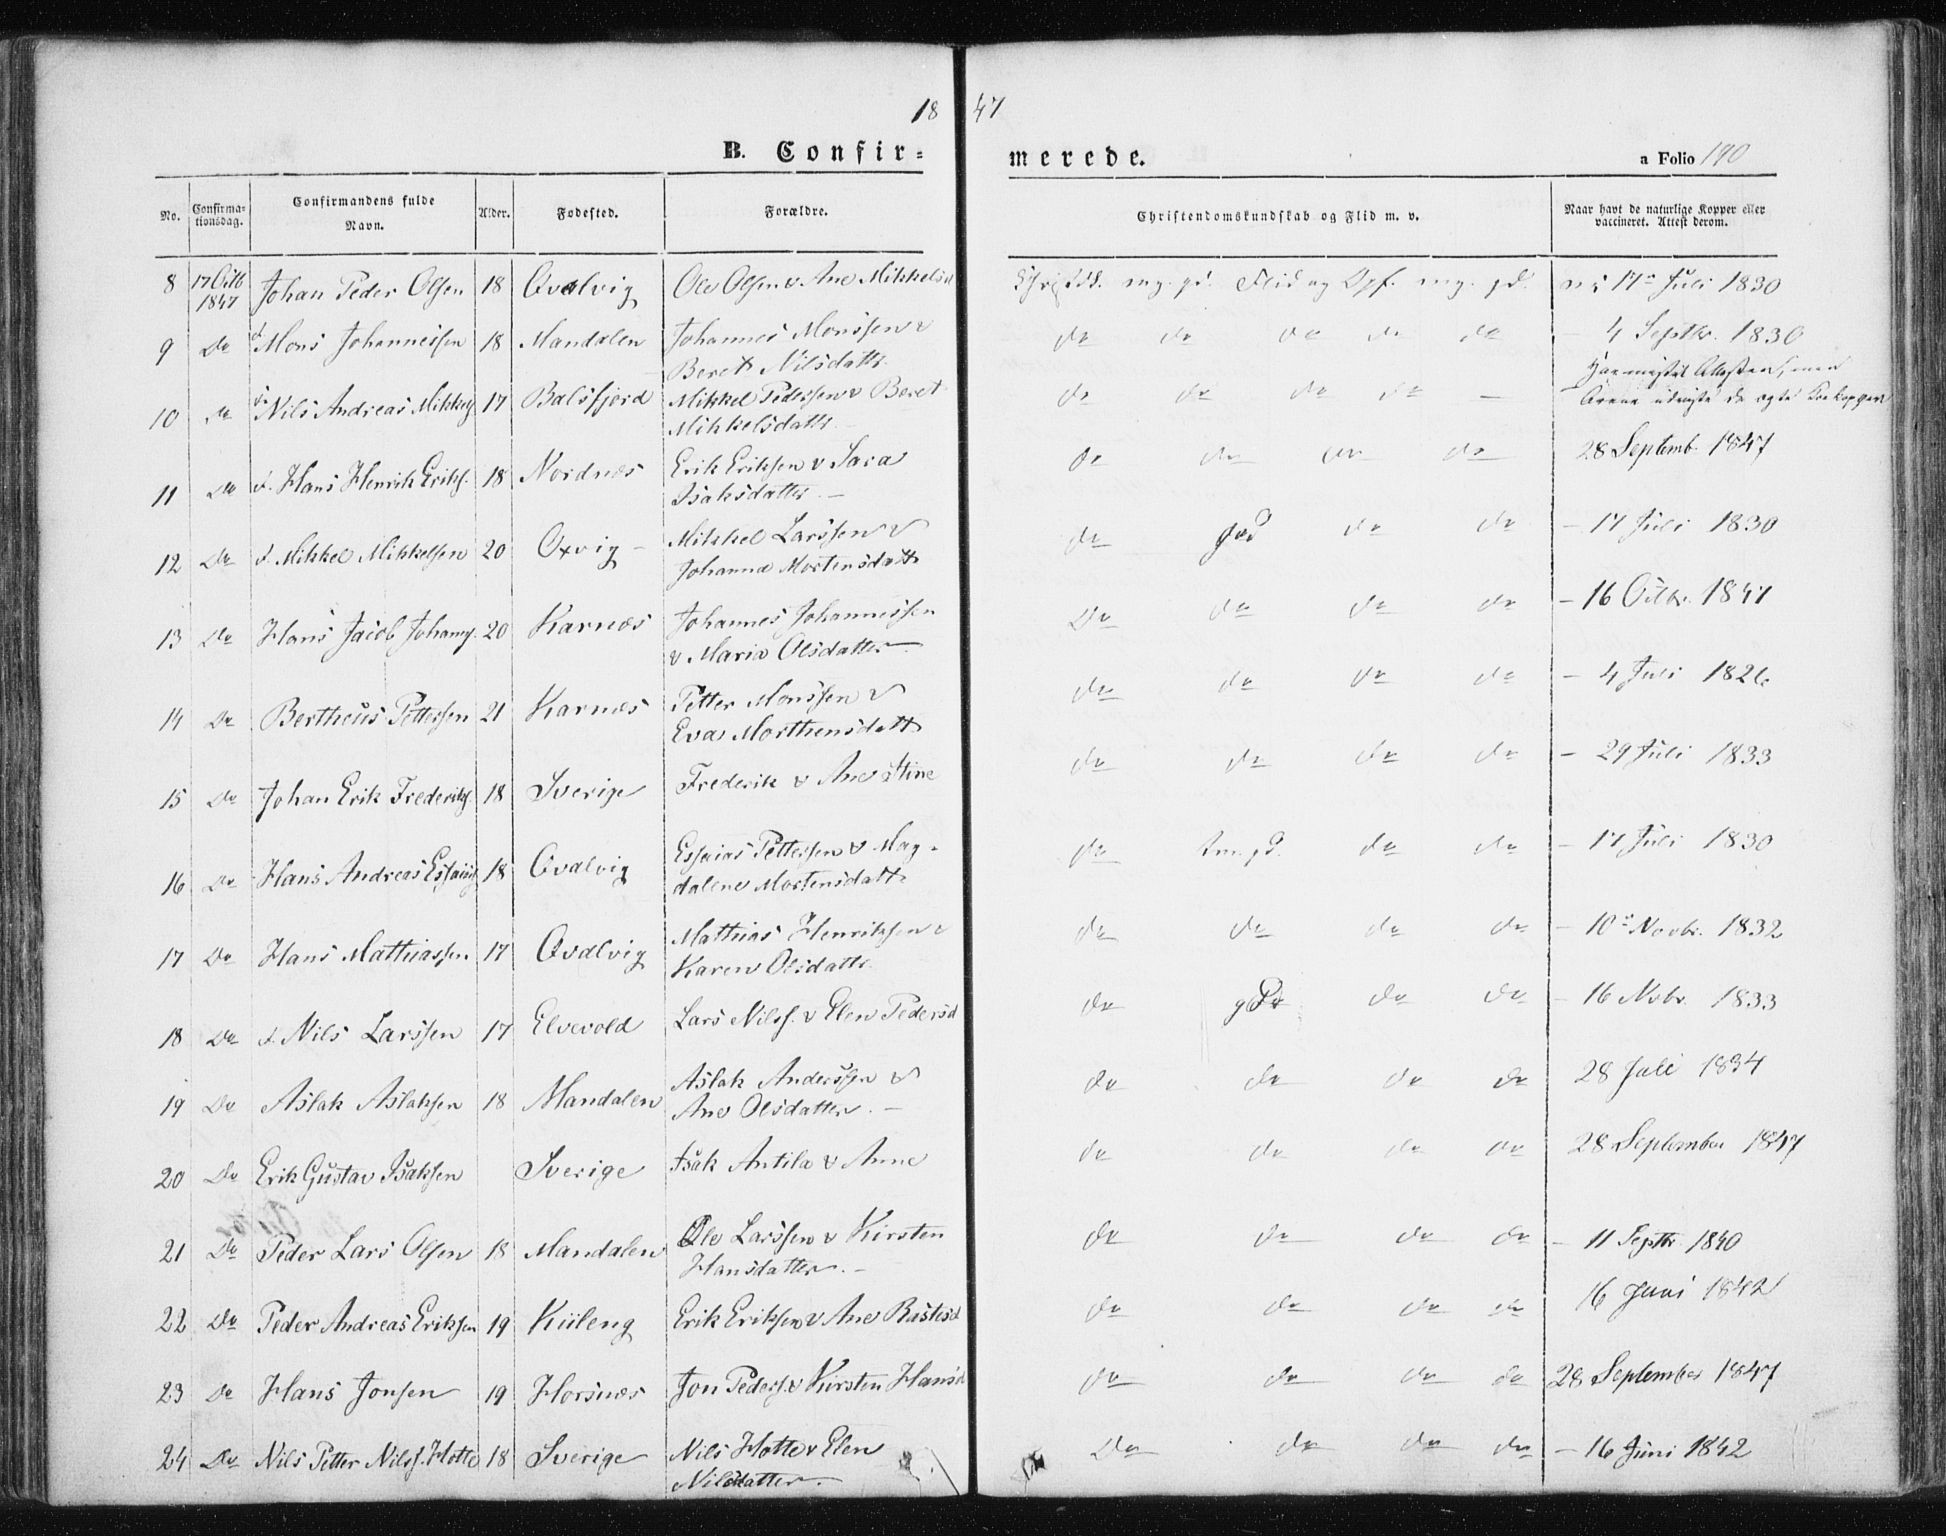 18 47
B. Confir= merede. a Folio 190
No. Confirma=tionsdag. Confirmandens fulde Navn. Alder. Fødested. Forældre. Christendomskundskab og Flid m. v. Naar havt de naturlige Kopper eller vaccineret. Attest derom.
8 17 Octb 1847 Johan Peder Olsen 18 Qvalvig Ole Olsen & Ane Mikkelsd mg. gd. Flid og Opf. mg. gd. 17 Juli 1830
9 Do Mons Johannessen 18 Mandalen Johannes Monssen & do do do do do 4 Septbr. 1830
Beret Nilsdattr.
10 do Nils Andreas Mikkels 17 Balsfjord Mikkel Pedersen & Beret do do do do — Har mistet Attesten, men
Mikkelsdattr. Arene udviste de ægte Kokopper
11 Do Hans Henrik Eriks. 18 Nordnæs Erik Eriksen & Sara do do do do 28 Septemb. 1847
Isaksdatter. —
12 Do Mikkel Mikkelsen 20 Oxvig — Mikkel Larssen & do god do do — 17 Juli 1830
Johanna Mortensdatt
13 Do Hans Jacob Johanns. 20 Karnæs Johannes Johannessen Do do do do — 16 Octbr. 1847
& Maria Olsdatter —
14 Do Bertheus Pettersen 21 Karnæs Petter Monssen & do do do do — 4 Juli 1826
Eva Morthensdatt
15 Do Johan Erik Frederiks. 18 Sverige Frederik & Ane Stine do do do do — 29 Juli 1833
16 Do Hans Andreas Essaias 18 Qvalvig Essaias Pettersen & Mag- do tm. gd. do do — 17 Juli 1830
dalene Mortensdatt
17 Do Hans Mathiassen 17 Qvalvig Mathias Henriksen & do do do do — 10 Novbr. 1832
Karen Olsdattr
18 Do Nils Larssen 17 Elvevold Lars Nilss. & Elen Pedersd do do do — 16 Nvbr. 1833
19 Do Aslak Aslaksen 18 Mandalen Aslak Anderssen & do do do do 28 Juli 1834
Ane Olsdatter. —
20 Do Erik Gustav Isaksen Sverige Isak Antila & Anne do do do do 28 September 1847
21 Do Peder Lars Olsen 18 Mandalen Ole Larssen & Kirsten do do do do — 11 Septbr 1840
Hansdatter. —
22 Do Peder Andreas Eriksen 19 Kiileng Erik Eriksen & Ane Rastesd do do do do 16 Juni 1842
23 Do Hans Jonsen 19 Horsnæs Jon Peders. & Kirsten Hansd do do do do 28 September 1847
24 Do Nils Petter Nilss. Hotte 18 Sverige Nils Hotte & Elen Do do do do — 16 Juni 1842
Nilsdatter.